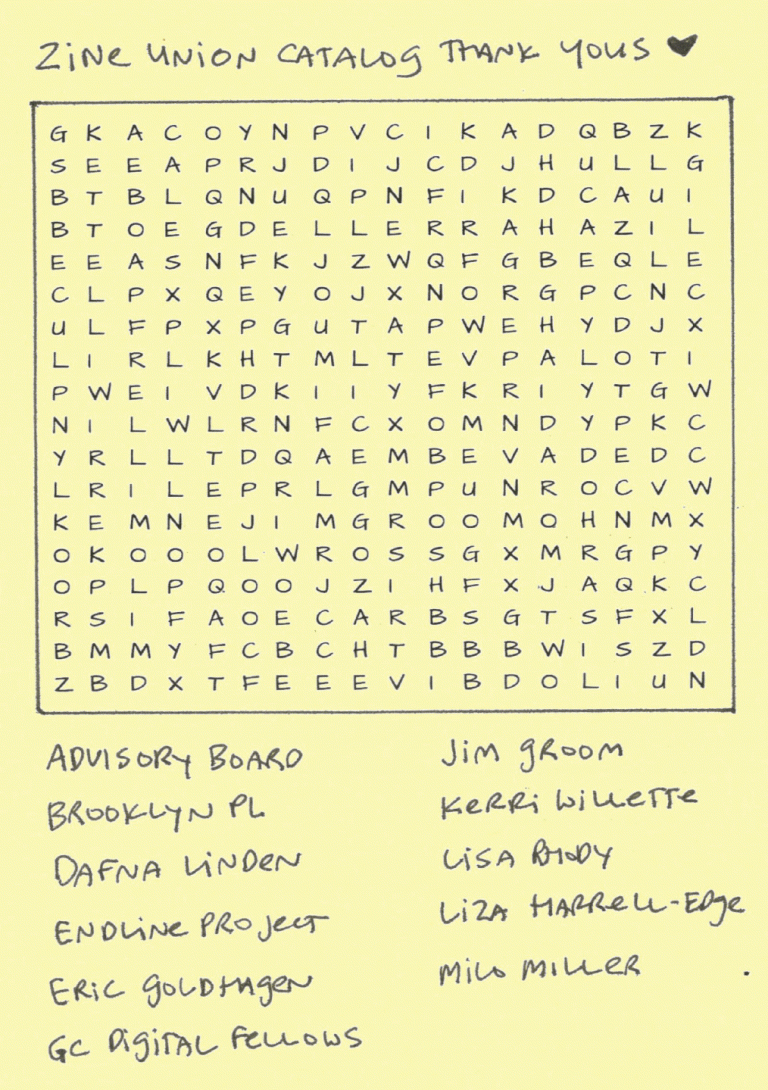 Zine Union Catalog Thank Yous ♥
G K A C O Y N P V C I K A D Q B Z K
S E E A P R J D I J C D J H U L L G
B T B L Q N U Q P N F I K D C A U I
B T O E G D E L L E R R A H A Z I L
E E A S N F K J Z W Q F G B E Q L E
C L P X Q E Y O J X N O R G P C N C
U L F P X P G U T A P W E H Y D J X
L I R L K H T M L T E V P A L O T I
P W E I V D K I I Y F K R I Y T G W
N I L W L R N F C X O M N D Y P K C
Y R L L T D Q A E M B E V A D E D C
L R I L E P R L G M P U N R O C V W
K E M N E J I M G R O O M Q H N M X
O K O O O L W R O S S G X M R G P Y
O P L P Q O O J Z I H F X J A Q K C
R S I F A O E C A R B S G T S F X L
B M M Y F C B C H T B B B W I S Z D
Z B D X T F E E E V I B D O L I U N
Advisory Board
Brooklyn PL
Dafna Linden
Endline Project
Eric Goldhagen
GC Digital Fellows
Jim Groom
Kerri Willette
Lisa Rhody
Liza Harrell-Edge
Milo Miller